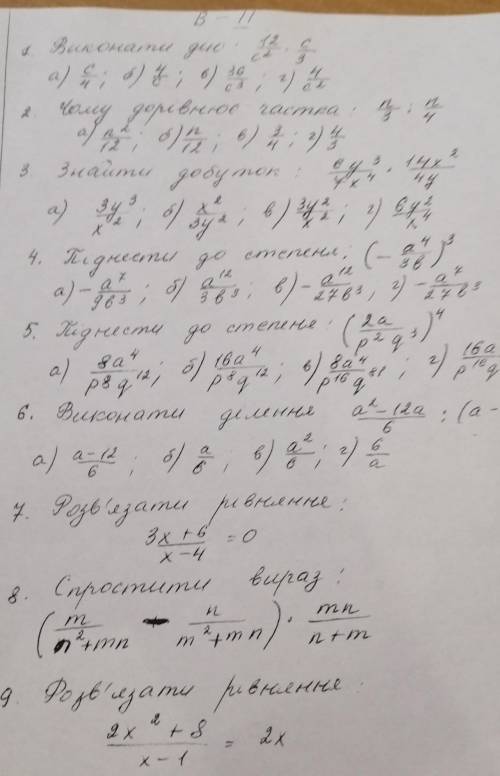 В - II
1. Виконати дію: 12/c² · c/3
а) c/4; б) 4/c; в) 36/c³; г) 4/c²
2. Чому дорівнює частка: n/3 : n/4
а) n²/12; б) n/12; в) 3/4; г) 4/3
3. Знайти добуток: 6y³/7x⁴ · 14x²/4y
а) 3y³/x²; б) x²/3y²; в) 3y²/x²; г) 6y²/x⁴
4. Піднести до степеня: (-a⁴/3b)³
а) -a⁷/9b³; б) a¹²/3b³; в) -a¹²/27b³; г) -a⁷/27b³
5. Піднести до степеня: (2a/p²q³)⁴
а) 8a⁴/p⁸q¹²; б) 16a⁴/p⁸q¹²; в) 8a⁴/p¹⁶q⁸¹; г) 16a/p¹⁶q
6. Виконати ділення a²-12a/6 : (a-
а) a-12/6; б) a/6; в) a²/6; г) 6/a
7. Розв'язати рівняння:
3x+6/x-4 = 0
8. Спростити вираз:
(m/n²+mn - n/m²+mn) · mn/n+m
9. Розв'язати рівняння:
2x²+8/x-1 = 2x